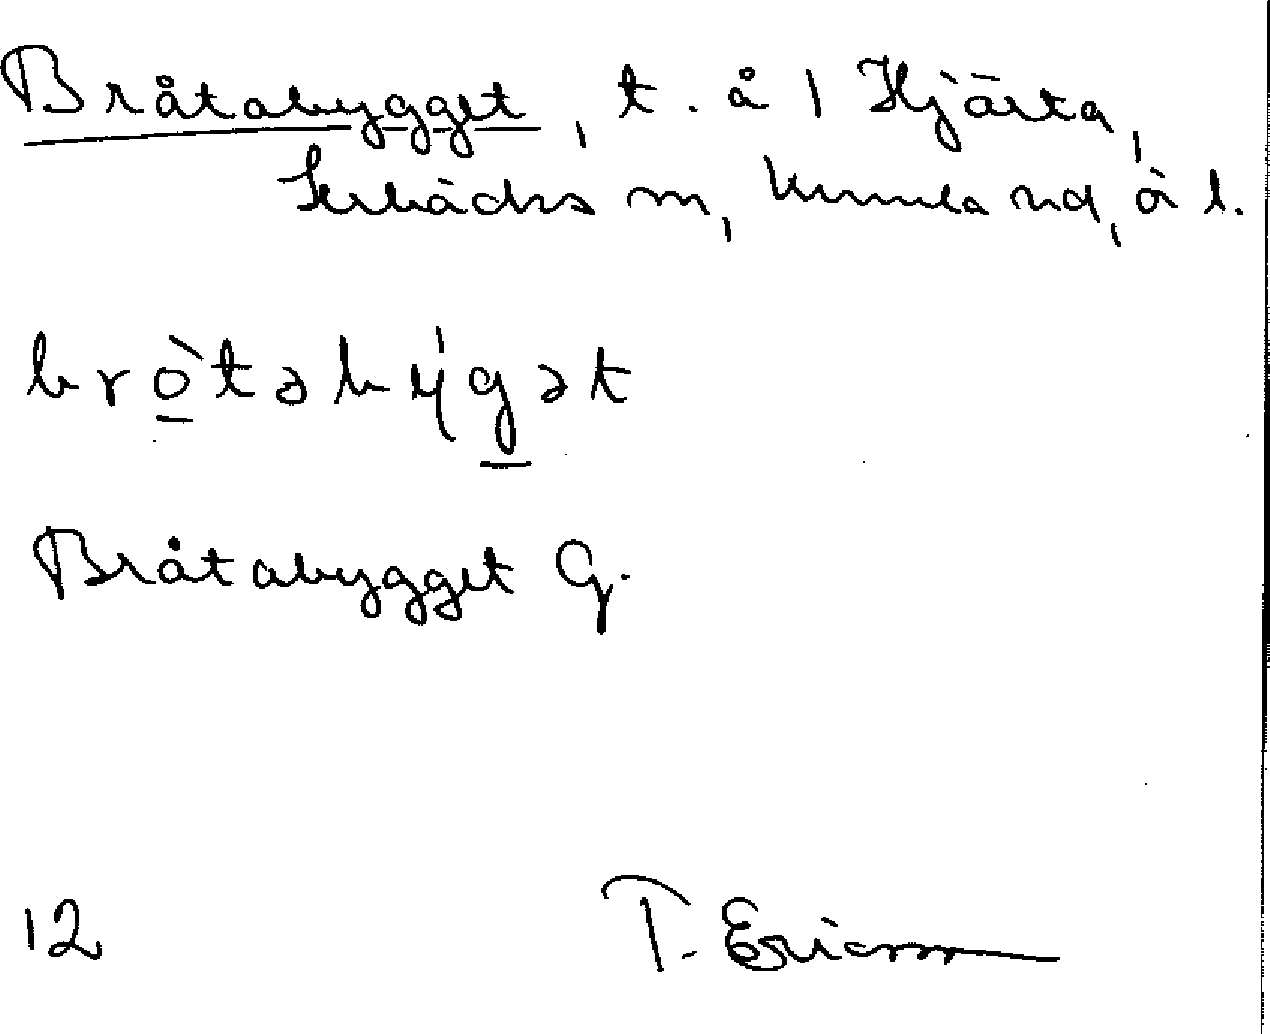 Bråtabygget, t. å 1 Hjärta,
Lerbäcks sn, Kumla hd, Ör l.
bròtabýgət
Bråtabygget G.
12
T. Ericsson